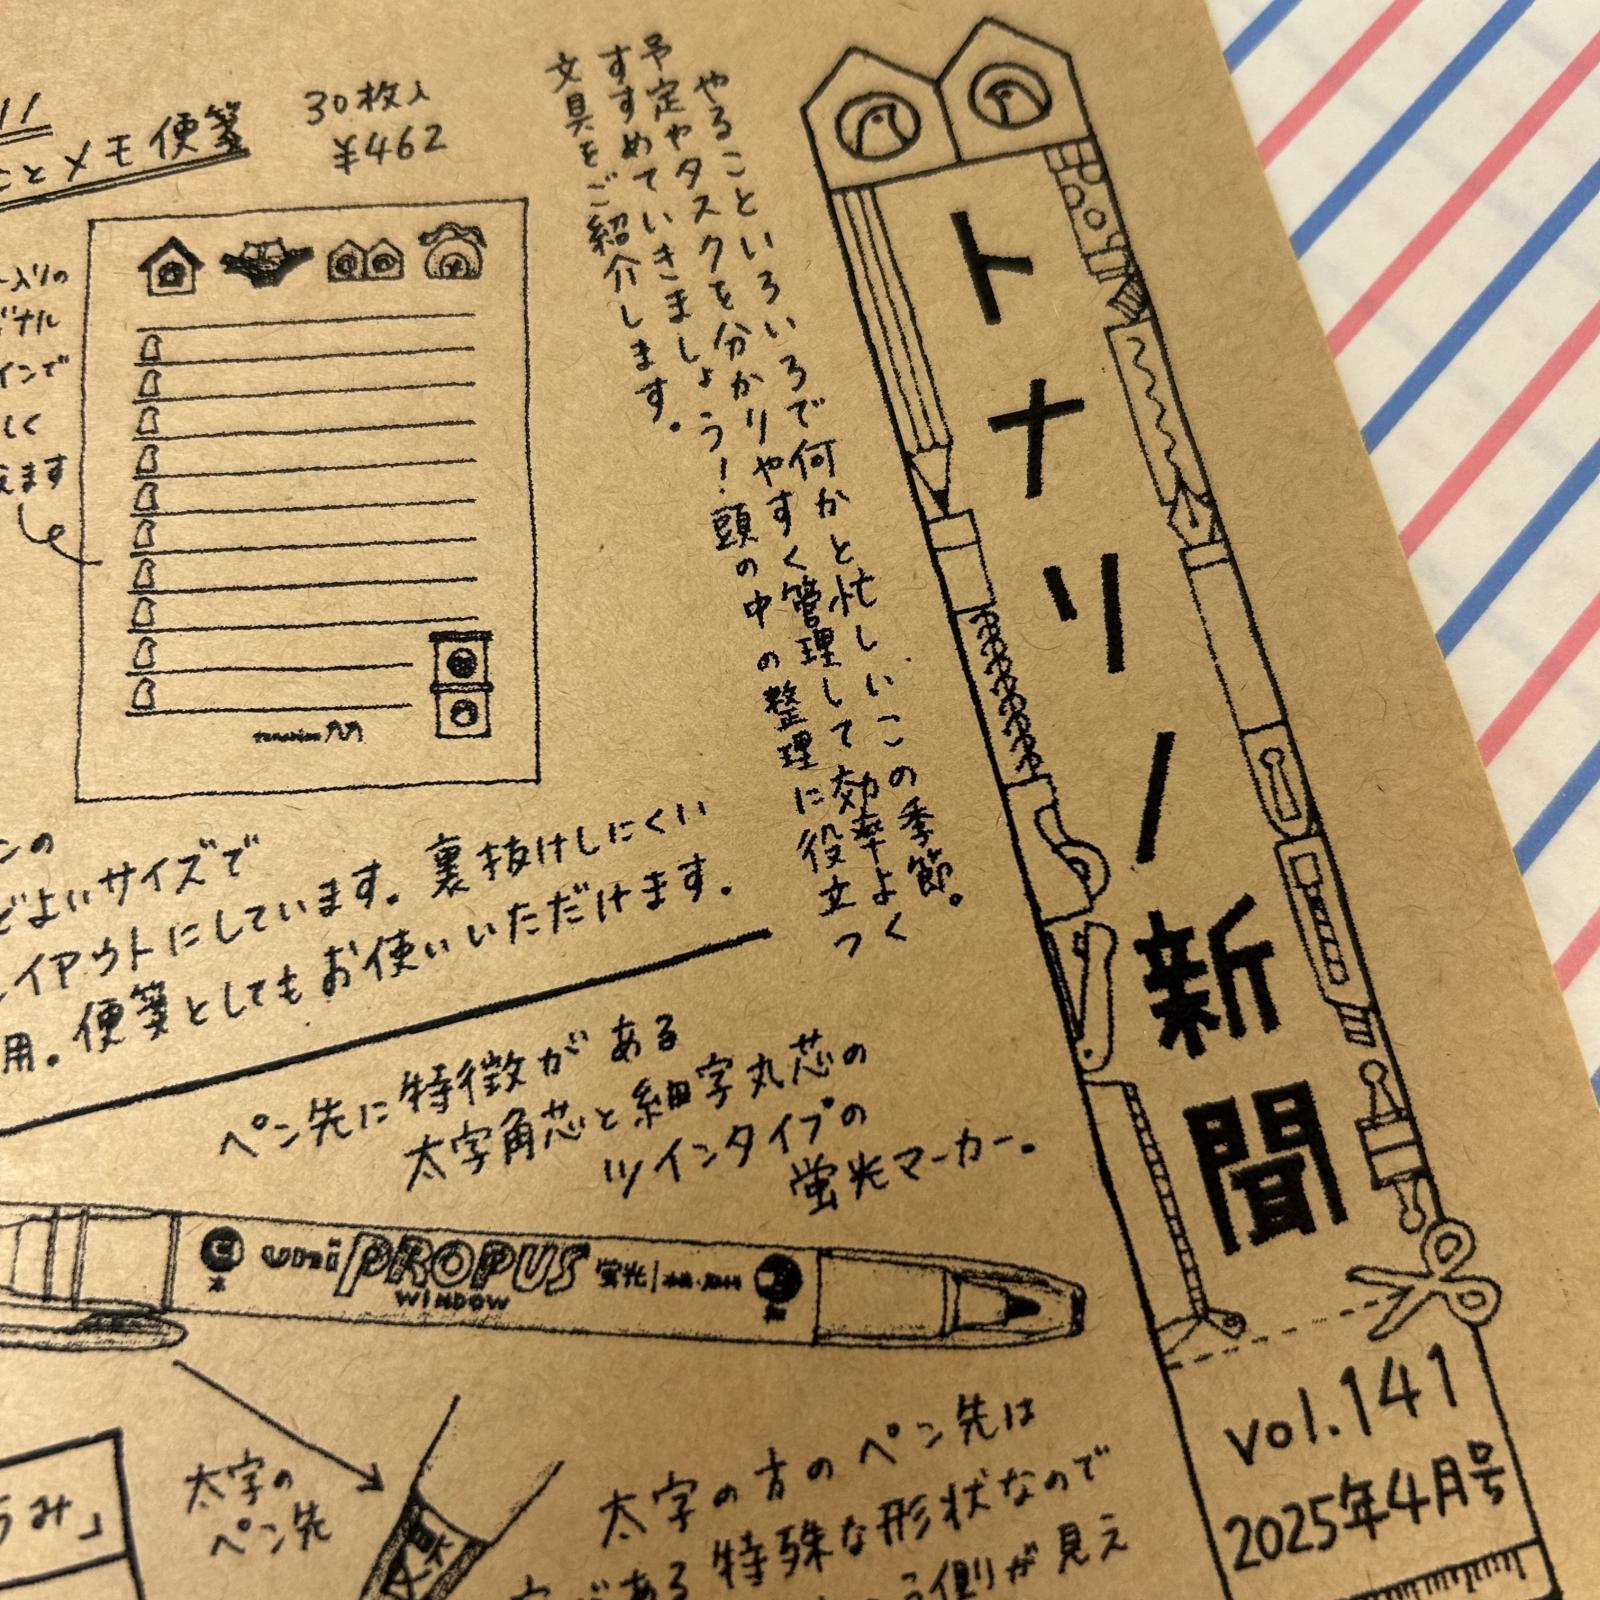 トナリノ新聞
vol.141
2025年4月号
やることいろいろで何かと忙しいこの季節。
予定やタスクを分かりやすく管理して効率よく
すすめていきましょう！頭の中の整理に役立つ
文具をご紹介します。
ことメモ便箋
30枚入
¥462
入りの
ナル
インで
しく
えます
ンの
どよいサイズで
レイアウトにしています。裏抜けしにくい
用。便箋としてもお使いいただけます。
ペン先に特徴がある
太字角芯と細字丸芯の
ツインタイプの
蛍光マーカー。
uni PROPUS 蛍光
WINDOW
太字の
ペン先
太字の方のペン先は
がある特殊な形状なので
側が見え
み」